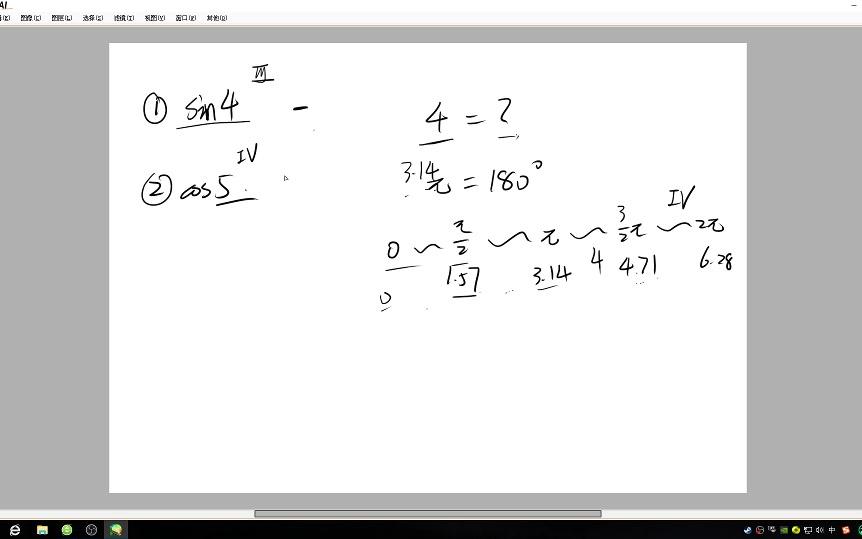 AI
图像(E) 图层(L) 选择(S) 滤镜(T) 视图(V) 窗口(W) 其他(O)
III
① sin4 −
4 = ?
IV
② cos5
3.14
π = 180°
IV
0 ~ π/2 ~ π ~ 3/2π ~ 2π
0 1.57 3.14 4 4.71 6.28
中